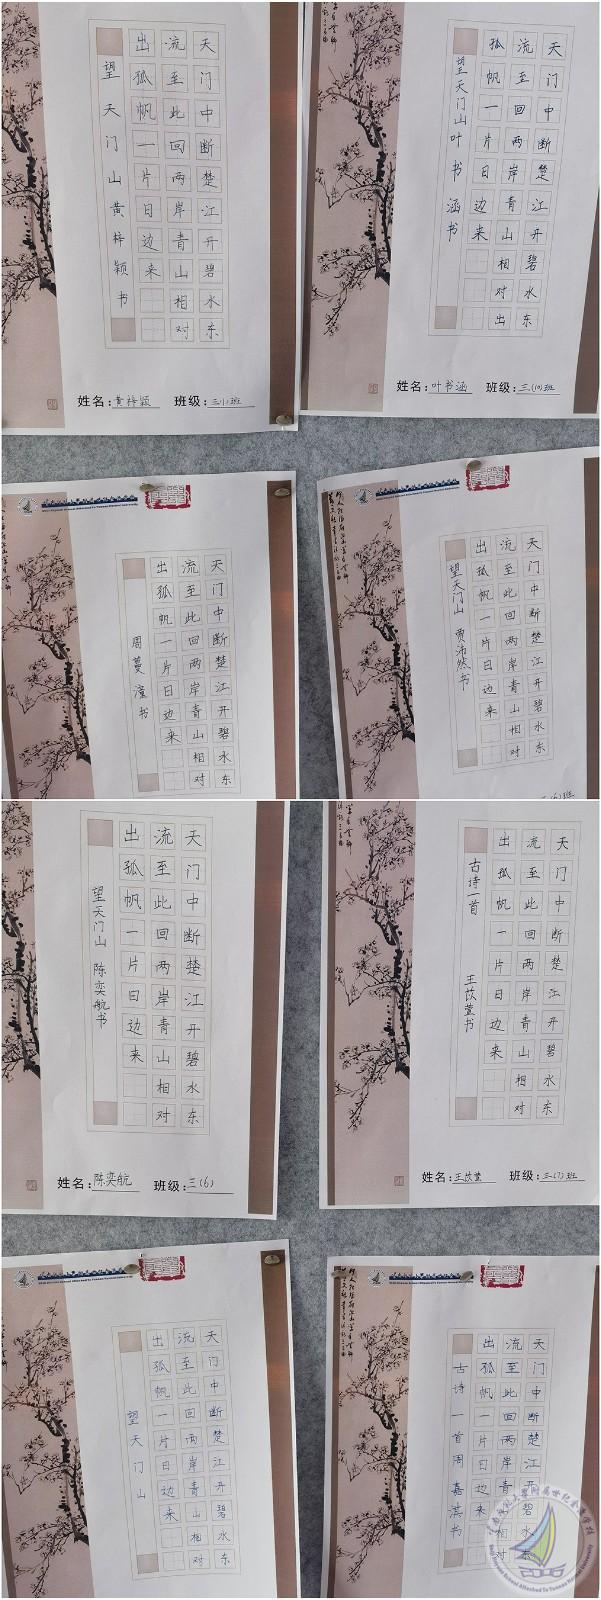 天门中断楚江开碧水东
流至此回两岸青山相对
出孤帆一片日边来
望天门山黄梓颖书
姓名:黄梓颖 班级:三(1)班
天门中断楚江开碧水东
流至回两岸青山相对出
孤帆一片日边来
望天门山叶书涵书
姓名:叶书涵 班级:三(10)班
天门中断楚江开碧水东
流至此回两岸青山相对
出孤帆一片日边来
周蔓潼书
天门中断楚江开碧水东
流至此回两岸青山相对
出孤帆一片日边来
望天门山 贾沛然书
天门中断楚江开碧水东
流至此回两岸青山相对
出孤帆一片日边来
望天门山 陈奕航书
姓名:陈奕航 班级:三(6)
天门中断楚江开碧水东
流至此回两岸青山相对
出孤帆一片日边来
古诗一首 王饮萱书
姓名:王饮萱 班级:三(7)班
天门中断楚江开碧水东
流至此回两岸青山相对
出孤帆一片日边来
望天门山
天门中断楚江开碧水东
流至此回两岸青山相对
出孤帆一片日边来
古诗一首周嘉淇书